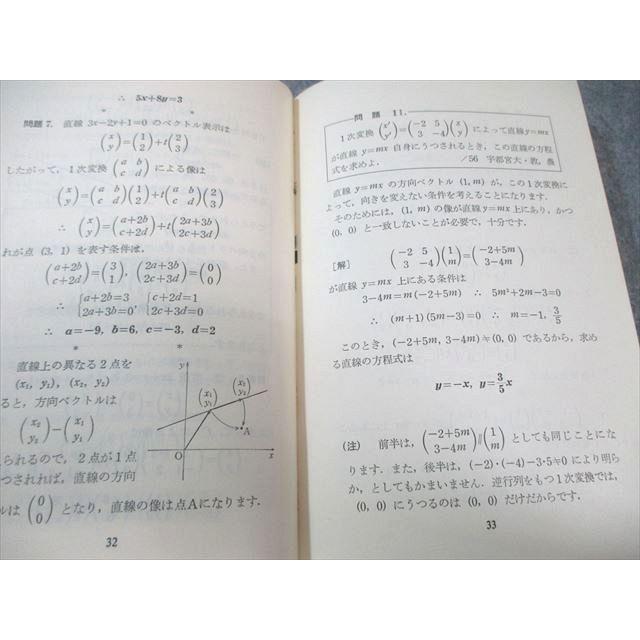 ∴ 5x+8y=3
* *
問題7. 直線 3x−2y+1=0 のベクトル表示は
(x y)=(1 2)+t(2 3)
したがって，1次変換 (a b c d) による像は
(x y)=(a b c d)(1 2)+t(a b c d)(2 3)
∴ (x y)=(a+2b c+2d)+t(2a+3b 2c+3d)
れが点 (3, 1) を表す条件は．
(a+2b c+2d)=(3 1), (2a+3b 2c+3d)=(0 0)
∴ {a+2b=3 2a+3b=0, {c+2d=1 2c+3d=0
∴ a=−9, b=6, c=−3, d=2
* *
直線上の異なる2点を
(x₁, y₁), (x₂, y₂)
ると，方向ベクトルは
(x₂ y₂)−(x₁ y₁)
られるので，2点が1点
つされれば，直線の方向
ルは (0 0) となり，直線の像は点Aになります．
y
(x₁ y₁)
(x₂ y₂)
A
O
x
32
問題 11.
1次変換 (x′ y′)=(−2 5 3 −4)(x y) によって直線 y=mx
が直線 y=mx 自身にうつされるとき，この直線の方程
式を求めよ． /56 宇都宮大・教，農
直線 y=mx の方向ベクトル (1, m) が，この1次変換に
よって，向きを変えない条件を考えることになります．
そのためには，(1, m) の像が直線 y=mx 上にあり，かつ
(0, 0) と一致しないことが必要で，十分です．
[解] (−2 5 3 −4)(1 m)=(−2+5m 3−4m)
が直線 y=mx 上にある条件は
3−4m=m(−2+5m) ∴ 5m²+2m−3=0
∴ (m+1)(5m−3)=0 ∴ m=−1, 3/5
このとき，(−2+5m, 3−4m)≠(0, 0) であるから，求め
る直線の方程式は
y=−x, y=3/5x
(注) 前半は，(−2+5m 3−4m)∥(1 m) としても同じことにな
ります．また，後半は，(−2)・(−4)−3・5≠0 により明ら
か，としてもかまいません．逆行列をもつ1次変換では，
(0, 0) にうつるのは (0, 0) だけだからです．
33